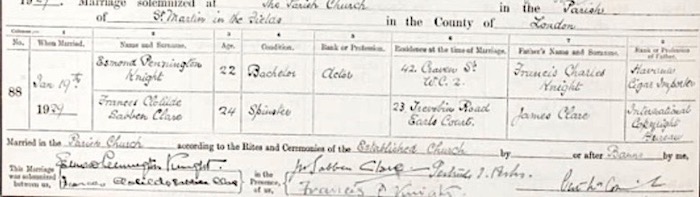 1929. Marriage solemnized at The Parish Church in the Parish
of St. Martin in the Fields in the County of London
Columns:— 1 2 3 4 5 6 7 8
No. When Married. Name and Surname. Age. Condition. Rank or Profession. Residence at the time of Marriage. Father's Name and Surname. Rank or Profession of Father.
88
Jan 19th 1929
Esmond Pennington Knight 22 Bachelor Actor 42, Craven St W.C.2. Francis Charles Knight Havana Cigar Importer
Frances Clotilde Sabben Clare 24 Spinster 23, Road Earls Court. James Clare International Copyright Bureau
Married in the Parish Church according to the Rites and Ceremonies of the Established Church by or after Banns by me,
This Marriage was solemnized between us, Esmond Pennington Knight. in the Presence of us, Sabben Clare Gertrude
Frances Clotilde Sabben Clare Francis C Knight